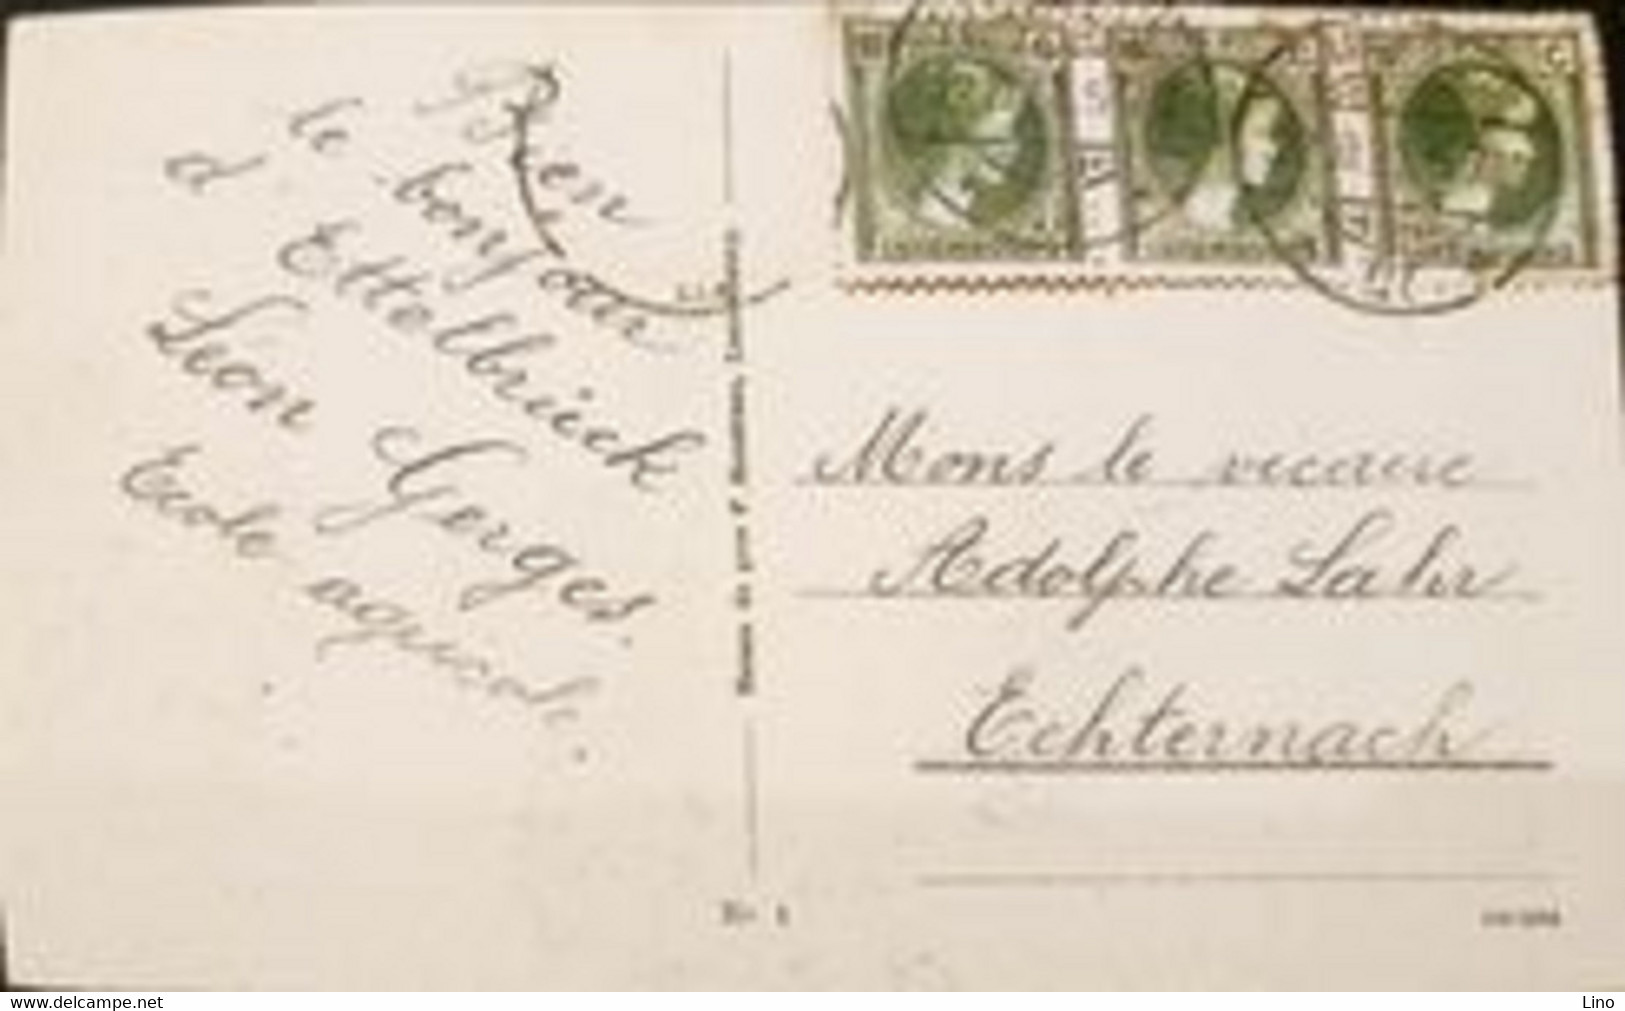 Bien
le bonjour
d'Ettelbrück
Léon Gerges.
Ecole agricole.
Mons le vicaire
Adolphe Lahr
Echternach
No 1
www.delcampe.net
Lino